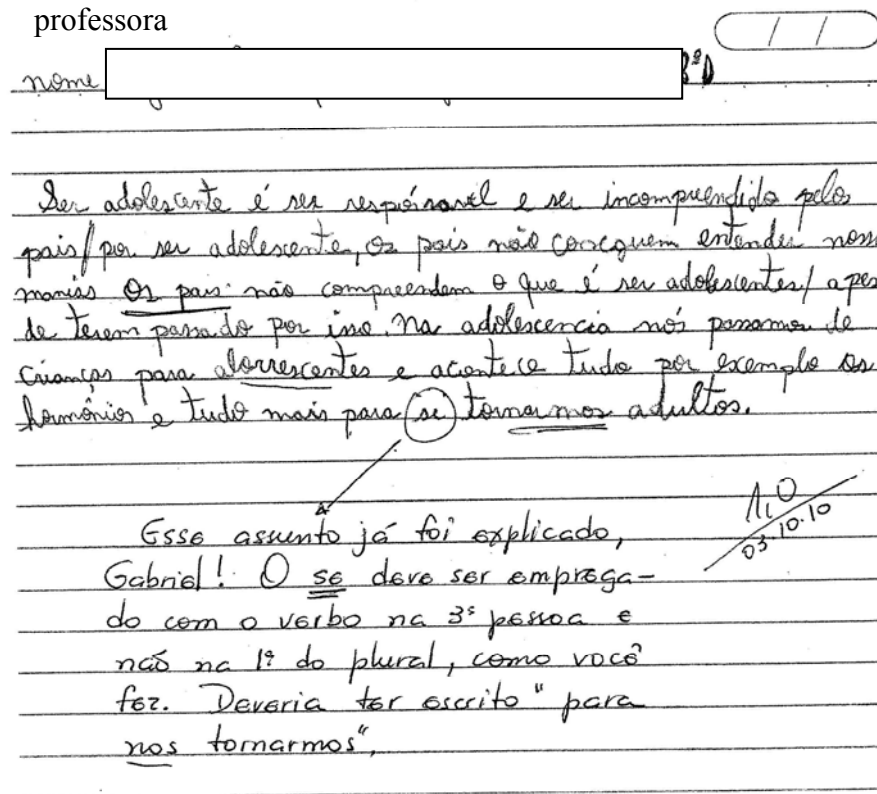 professora
nome
8ªD
Ser adolescente é ser respónsavél e ser incompreendido pelos
pais/ por ser adolescente, os pais não conseguem entender nossas
manias os pais não compreendem o que é ser adolescentes/ apes
de terem passado por isso. Na adolescencia nós passamos de
crianças para alorrescentes e acontece tudo por exemplo os
hormônios e tudo mais para se tornarmos adultos.
1,0
03.10.10
Esse assunto já foi explicado,
Gabriel! O se deve ser emprega-
do com o verbo na 3ª pessoa e
não na 1ª do plural, como você
fez. Deveria ter escrito "para
nos tornarmos".